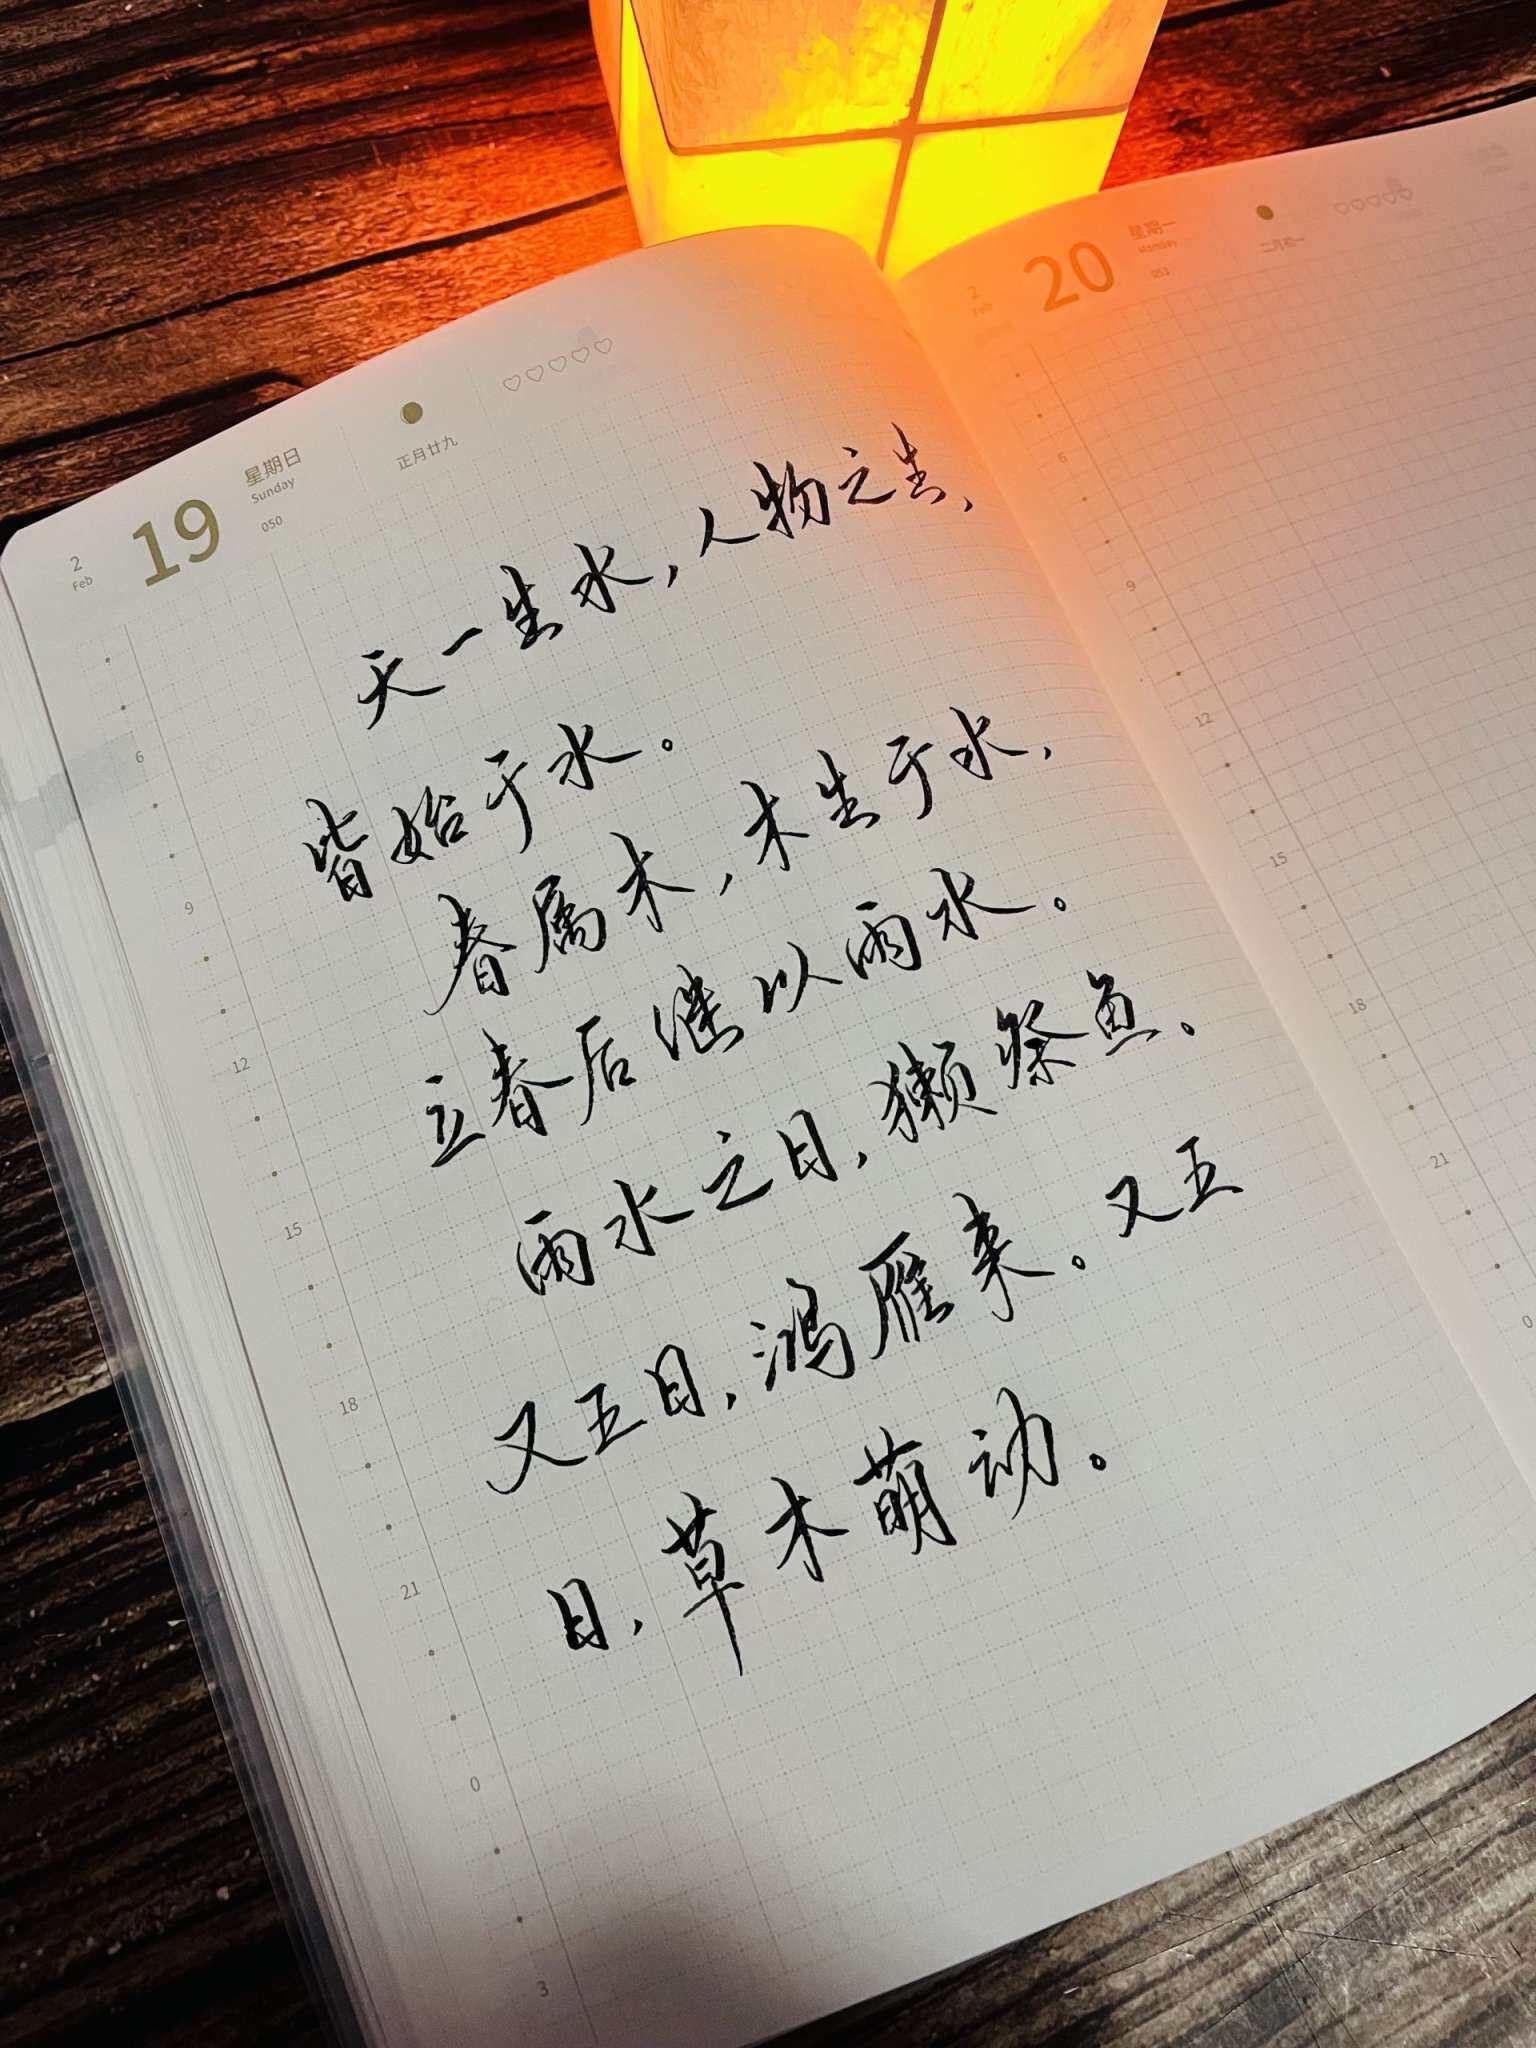 2
Feb
19
星期日
Sunday
050
正月廿九
天一生水，人物之生，
皆始于水。
春属木，木生于水，
立春后继以雨水。
雨水之日，獭祭鱼。
又五日，鸿雁来。又五
日，草木萌动。
6
9
12
15
18
21
0
3
2
Feb
20
星期一
Monday
051
二月初一
6
9
12
15
18
21
0